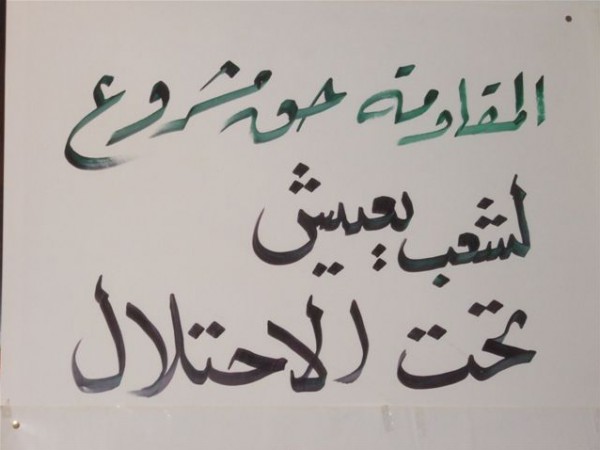 المقاومة حق مشروع
لشعب يعيش
تحت الاحتلال